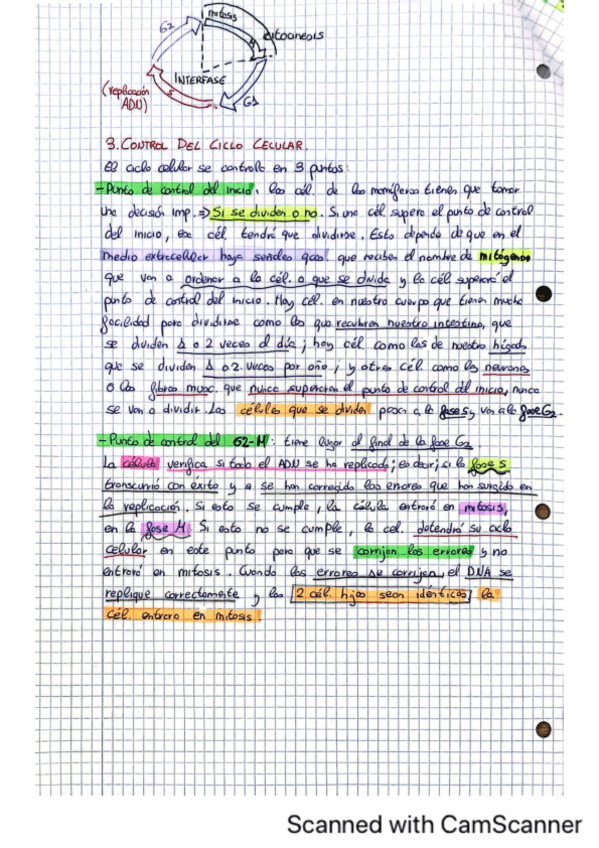 mitosis
G2
citocinesis
INTERFASE
(replicación
ADN)
S
G1
3. CONTROL DEL CICLO CELULAR.
El ciclo celular se controla en 3 puntos:
- Punto de control del inicio: las cél. de los mamíferos tienen que tomar
una decisión imp. => Si se dividen o no. Si una cél. supera el punto de control
del inicio, esa cél. tendrá que dividirse. Esto depende de que en el
medio extracelular haya señales que reciben el nombre de mitógenos
que van a ordenar a la cél. a que se divida y la cél superará el
punto de control del inicio. Hay cél. en nuestro cuerpo que tienen mucha
facilidad para dividirse como las que recubren nuestro intestino, que
se dividen 1 o 2 veces al día; hay cél. como las de nuestro hígado
que se dividen 1 o 2 veces por año; y otras cél. como las neuronas
o las fibras musc. que nunca superarán el punto de control del inicio, nunca
se van a dividir. Las células que se dividen pasan a la fase S y van a la fase G2.
- Punto de control del G2-M: tiene lugar al final de la fase G2.
La célula verifica si todo el ADN se ha replicado; es decir, si la fase S
transcurrió con éxito y se han corregido los errores que han surgido en
la replicación. Si esto se cumple, la célula entrará en mitosis,
en la fase M. Si esto no se cumple, la cel. detendrá su ciclo
celular en este punto para que se corrijan los errores y no
entrará en mitosis. Cuando los errores se corrijan, el DNA se
replique correctamente y las 2 cél. hijas sean idénticas, la
cél. entrará en mitosis.
Scanned with CamScanner